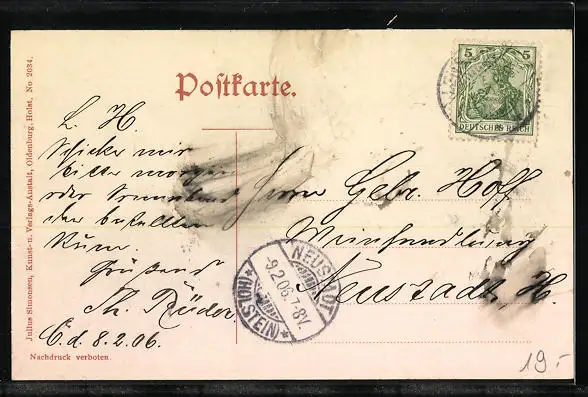 Postkarte.
5 5
DEUTSCHES REICH
L. H.
Schicke mir
bitte morgen
oder Sonnabend
den bestellten
Rum.
Grüßend
Th. Rüder.
E. d. 8.2.06.
Herrn Gebr. Hoff
Weinhandlung
Neustadt, H.
NEUSTADT
-9.2.06.7-8V.
*(HOLSTEIN)*
Julius Simonsen, Kunst- u. Verlags-Anstalt, Oldenburg, Holst. No 2634.
Nachdruck verboten.
19.-